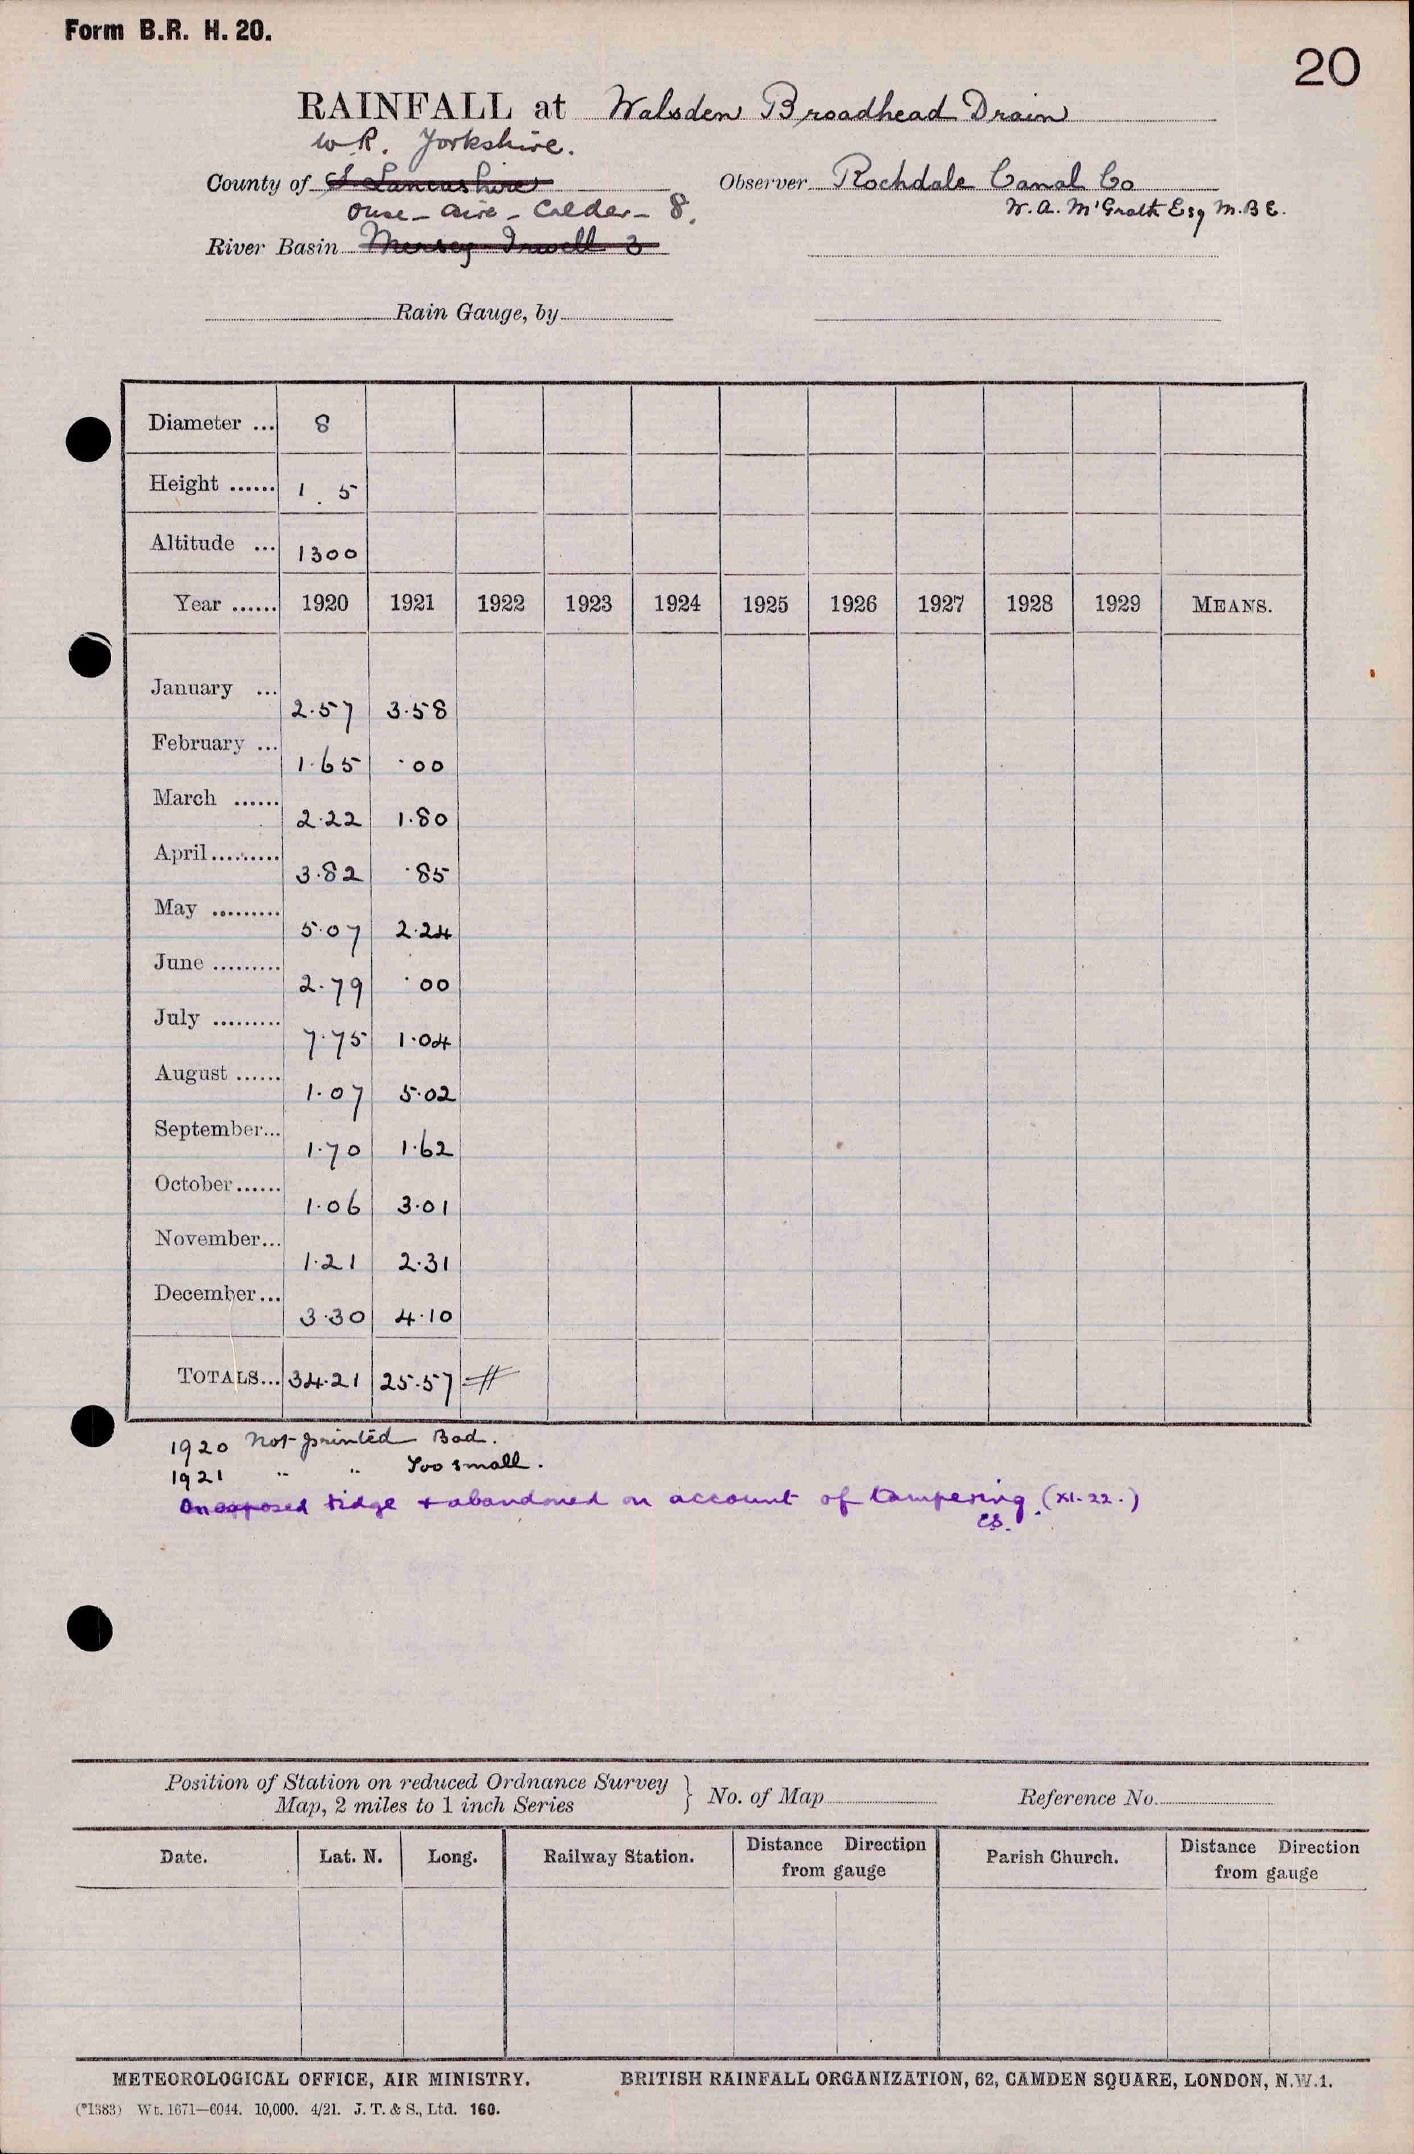 Form B.R. H. 20.
20
RAINFALL at Walsden Broadhead Drain
W.R. Yorkshire.
County of S Lancashire Observer Rochdale Canal Co
Ouse - Aire - Calder - 8. W. A. McGrath Esq M.B.E.
River Basin Mersey Irwell 3
Rain Gauge, by
Diameter ... 8
Height ...... 1 . 5
Altitude ... 1300
Year ...... 1920 1921 1922 1923 1924 1925 1926 1927 1928 1929 MEANS.
January ... 2.57 3.58
February ... 1.65 .00
March ...... 2.22 1.80
April ......... 3.82 .85
May ......... 5.07 2.24
June ......... 2.79 .00
July ......... 7.75 1.04
August ...... 1.07 5.02
September... 1.70 1.62
October...... 1.06 3.01
November... 1.21 2.31
December... 3.30 4.10
TOTALS... 34.21 25.57 #
1920 Not printed Bad.
1921 " " Too small.
On exposed ridge & abandoned on account of tampering. (XI.22.)
Position of Station on reduced Ordnance Survey
Map, 2 miles to 1 inch Series } No. of Map Reference No.
Date. Lat. N. Long. Railway Station. Distance Direction from gauge Parish Church. Distance Direction from gauge
METEOROLOGICAL OFFICE, AIR MINISTRY. BRITISH RAINFALL ORGANIZATION, 62, CAMDEN SQUARE, LONDON, N.W.1.
(*1383) Wt. 1671—6044. 10,000. 4/21. J. T. & S., Ltd. 160.